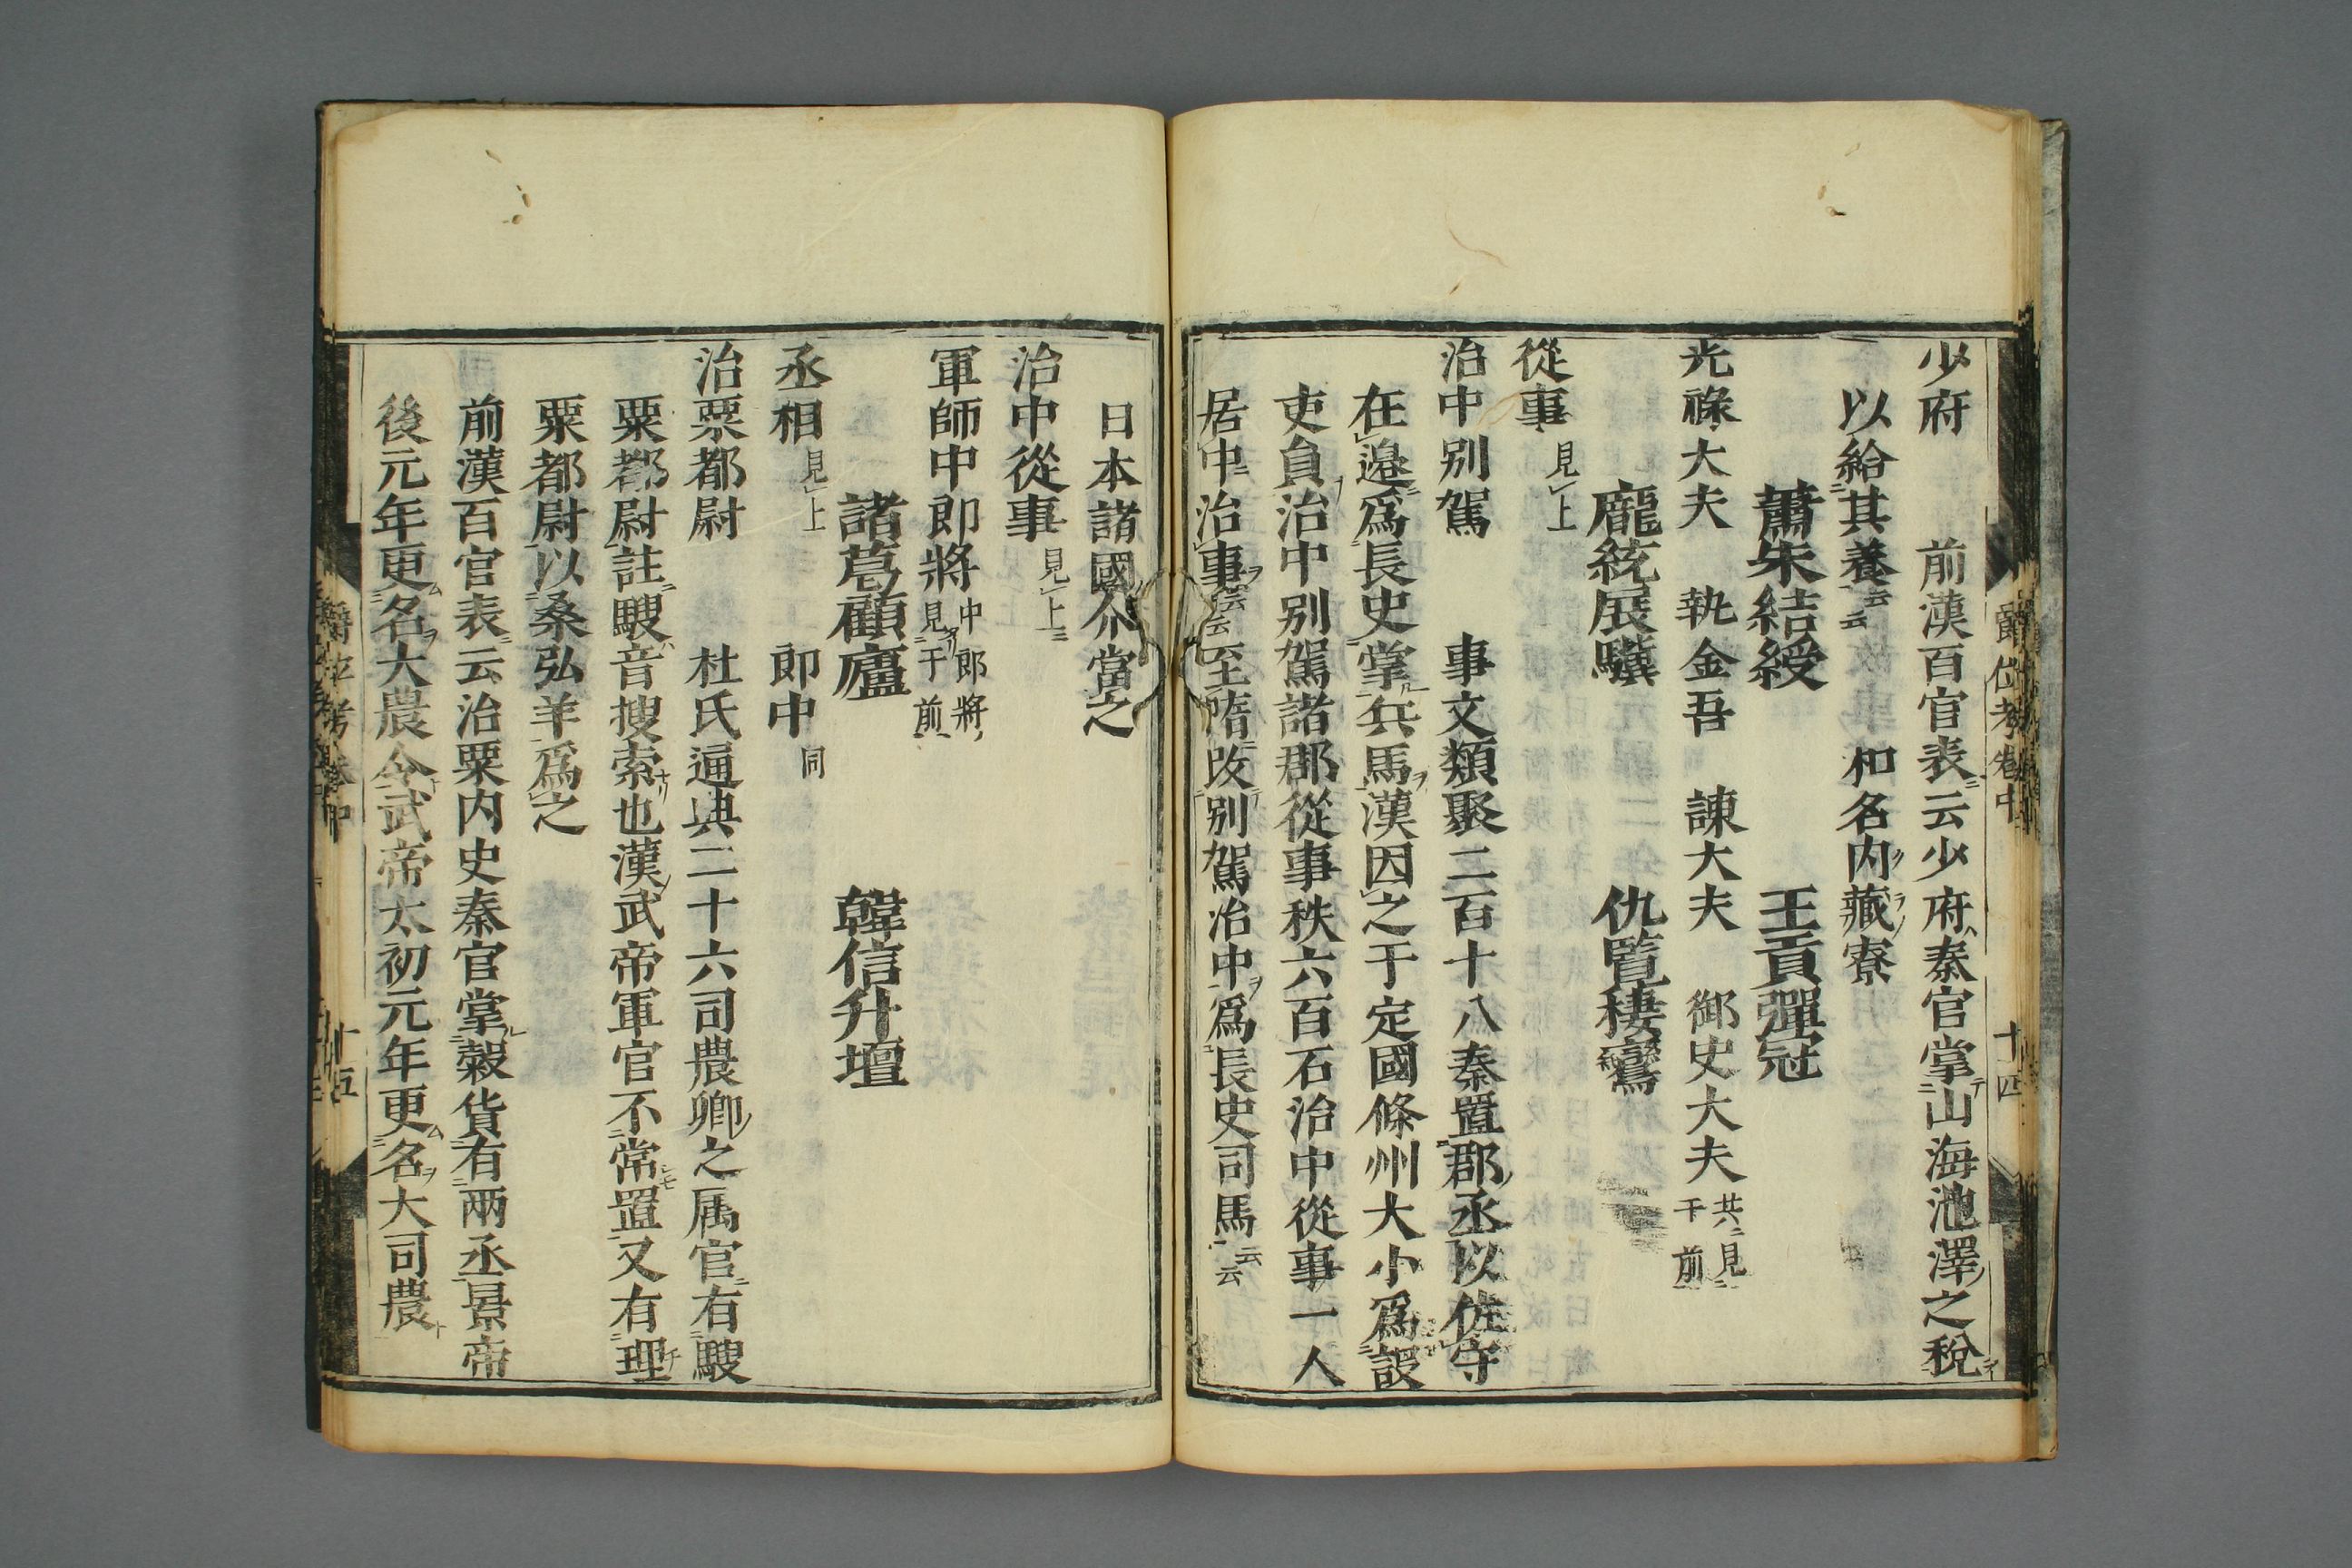 少府　前漢百官表云少府秦官掌山海池澤之稅
以給其養云云　和名内藏寮
蕭朱結綬　王貢彈冠
光祿大夫　執金吾　諫大夫　御史大夫共見于前
龐統展驥　仇覧棲鸞
從事見上
治中别駕　事文類聚二百十八秦置郡丞以佐守
在邉爲長史掌兵馬漢因之于定國條州大小爲設
吏負治中别駕諸郡從事秩六百石治中從事一人
居中治事云云至隋改别駕治中爲長史司馬云云
爵位考卷中　十四
日本諸國介當之
治中從事見上
軍師中郎將中郎將見于前
諸葛顧廬　韓信升壇
丞相見上　郎中同
治粟都尉　杜氏通典二十六司農卿之属官有騪
粟都尉註騪音搜索也漢武帝軍官不常置又有理
粟都尉以桑弘羊爲之
前漢百官表云治粟内史秦官掌穀貨有兩丞景帝
後元年更名大農令武帝太初元年更名大司農
爵位考卷中　十五